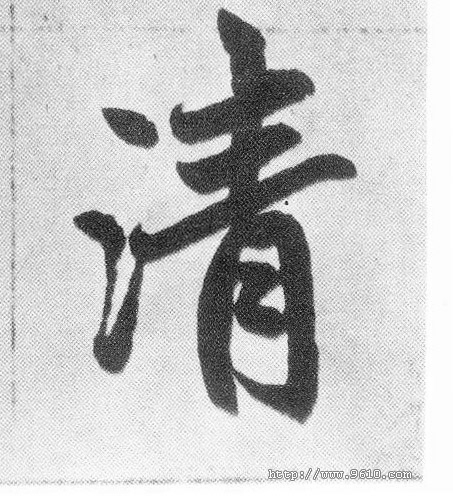 清
http://www.9610.com